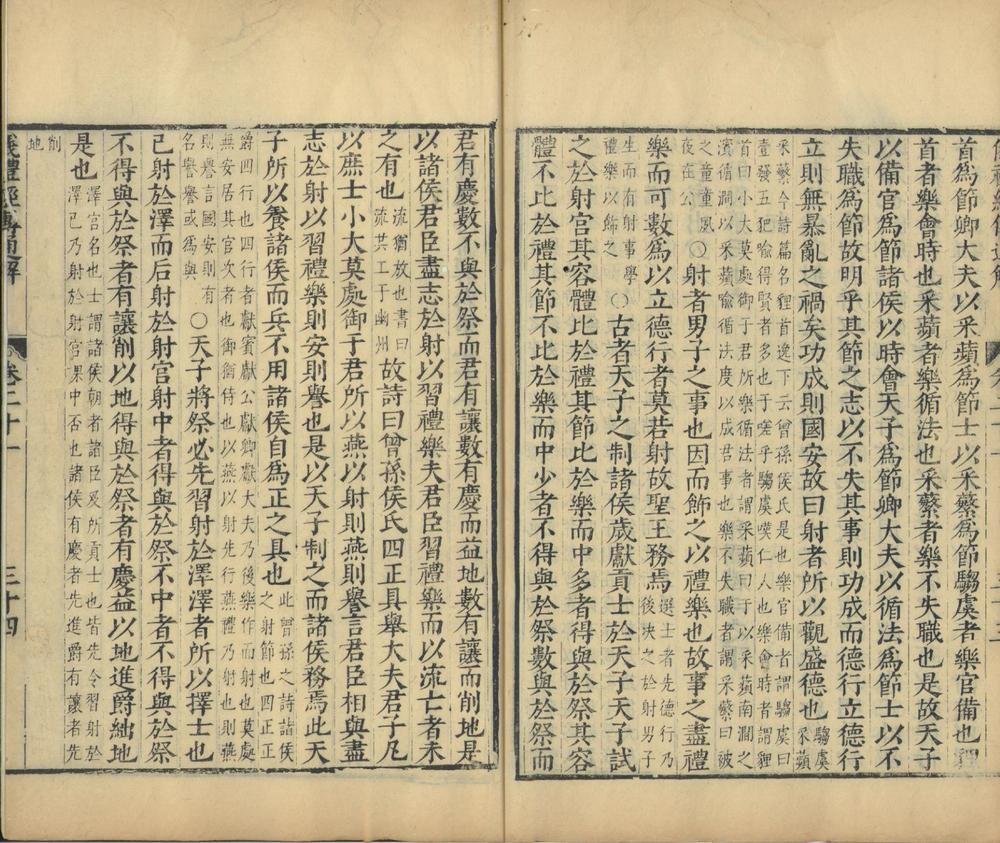 首爲節卿大夫以采蘋爲節士以采蘩爲節騶虞者樂官備也貍
首者樂會時也采蘋者樂循法也采蘩者樂不失職也是故天子
以備官爲節諸侯以時會天子爲節卿大夫以循法爲節士以不
失職爲節故明乎其節之志以不失其事則功成而德行立德行
立則無暴亂之禍矣功成則國安故曰射者所以觀盛德也
騶虞采蘋
采蘩今詩篇名貍首逸下云曾孫侯氏是也樂官備者謂騶虞曰
壹發五豝喻得賢者多也于嗟乎騶虞嘆仁人也樂會時者謂貍
首曰小大莫處御于君所樂循法者謂采蘋曰于以采蘋南澗之
濱循澗以采蘋喻循法度以成君事也樂不失職者謂采蘩曰被
之童童夙
夜在公
○射者男子之事也因而飾之以禮樂也故事之盡禮
樂而可數爲以立德行者莫若射故聖王務焉
選士者先德行乃
後決之於射男子
生而有射事學
禮樂以飾之
○古者天子之制諸侯歲獻貢士於天子天子試
之於射宮其容體比於禮其節比於樂而中多者得與於祭其容
體不比於禮其節不比於樂而中少者不得與於祭數與於祭而
君有慶數不與於祭而君有讓數有慶而益地數有讓而削地是
以諸侯君臣盡志於射以習禮樂夫君臣習禮樂而以流亡者未
之有也
流猶放也書曰
流共工于幽州
故詩曰曾孫侯氏四正具舉大夫君子凡
以庶士小大莫處御于君所以燕以射則燕則譽言君臣相與盡
志於射以習禮樂則安則譽也是以天子制之而諸侯務焉此天
子所以養諸侯而兵不用諸侯自爲正之具也
此曾孫之詩諸侯
之射節也四正正
爵四行也四行者獻賓獻公獻卿獻大夫乃後樂作而射也莫處
無安居其官次者也御猶侍也以燕以射先行燕禮乃射也則燕
則譽言國安則有
名譽譽或爲與
○天子將祭必先習射於澤澤者所以擇士也
已射於澤而后射於射宮射中者得與於祭不中者不得與於祭
不得與於祭者有讓削以地得與於祭者有慶益以地進爵絀地
是也
澤宮名也士謂諸侯朝者諸臣及所貢士也皆先令習射於
澤已乃射於射宮課中否也諸侯有慶者先進爵有讓者先
削
地
儀禮經傳通解
卷二十一
三十四